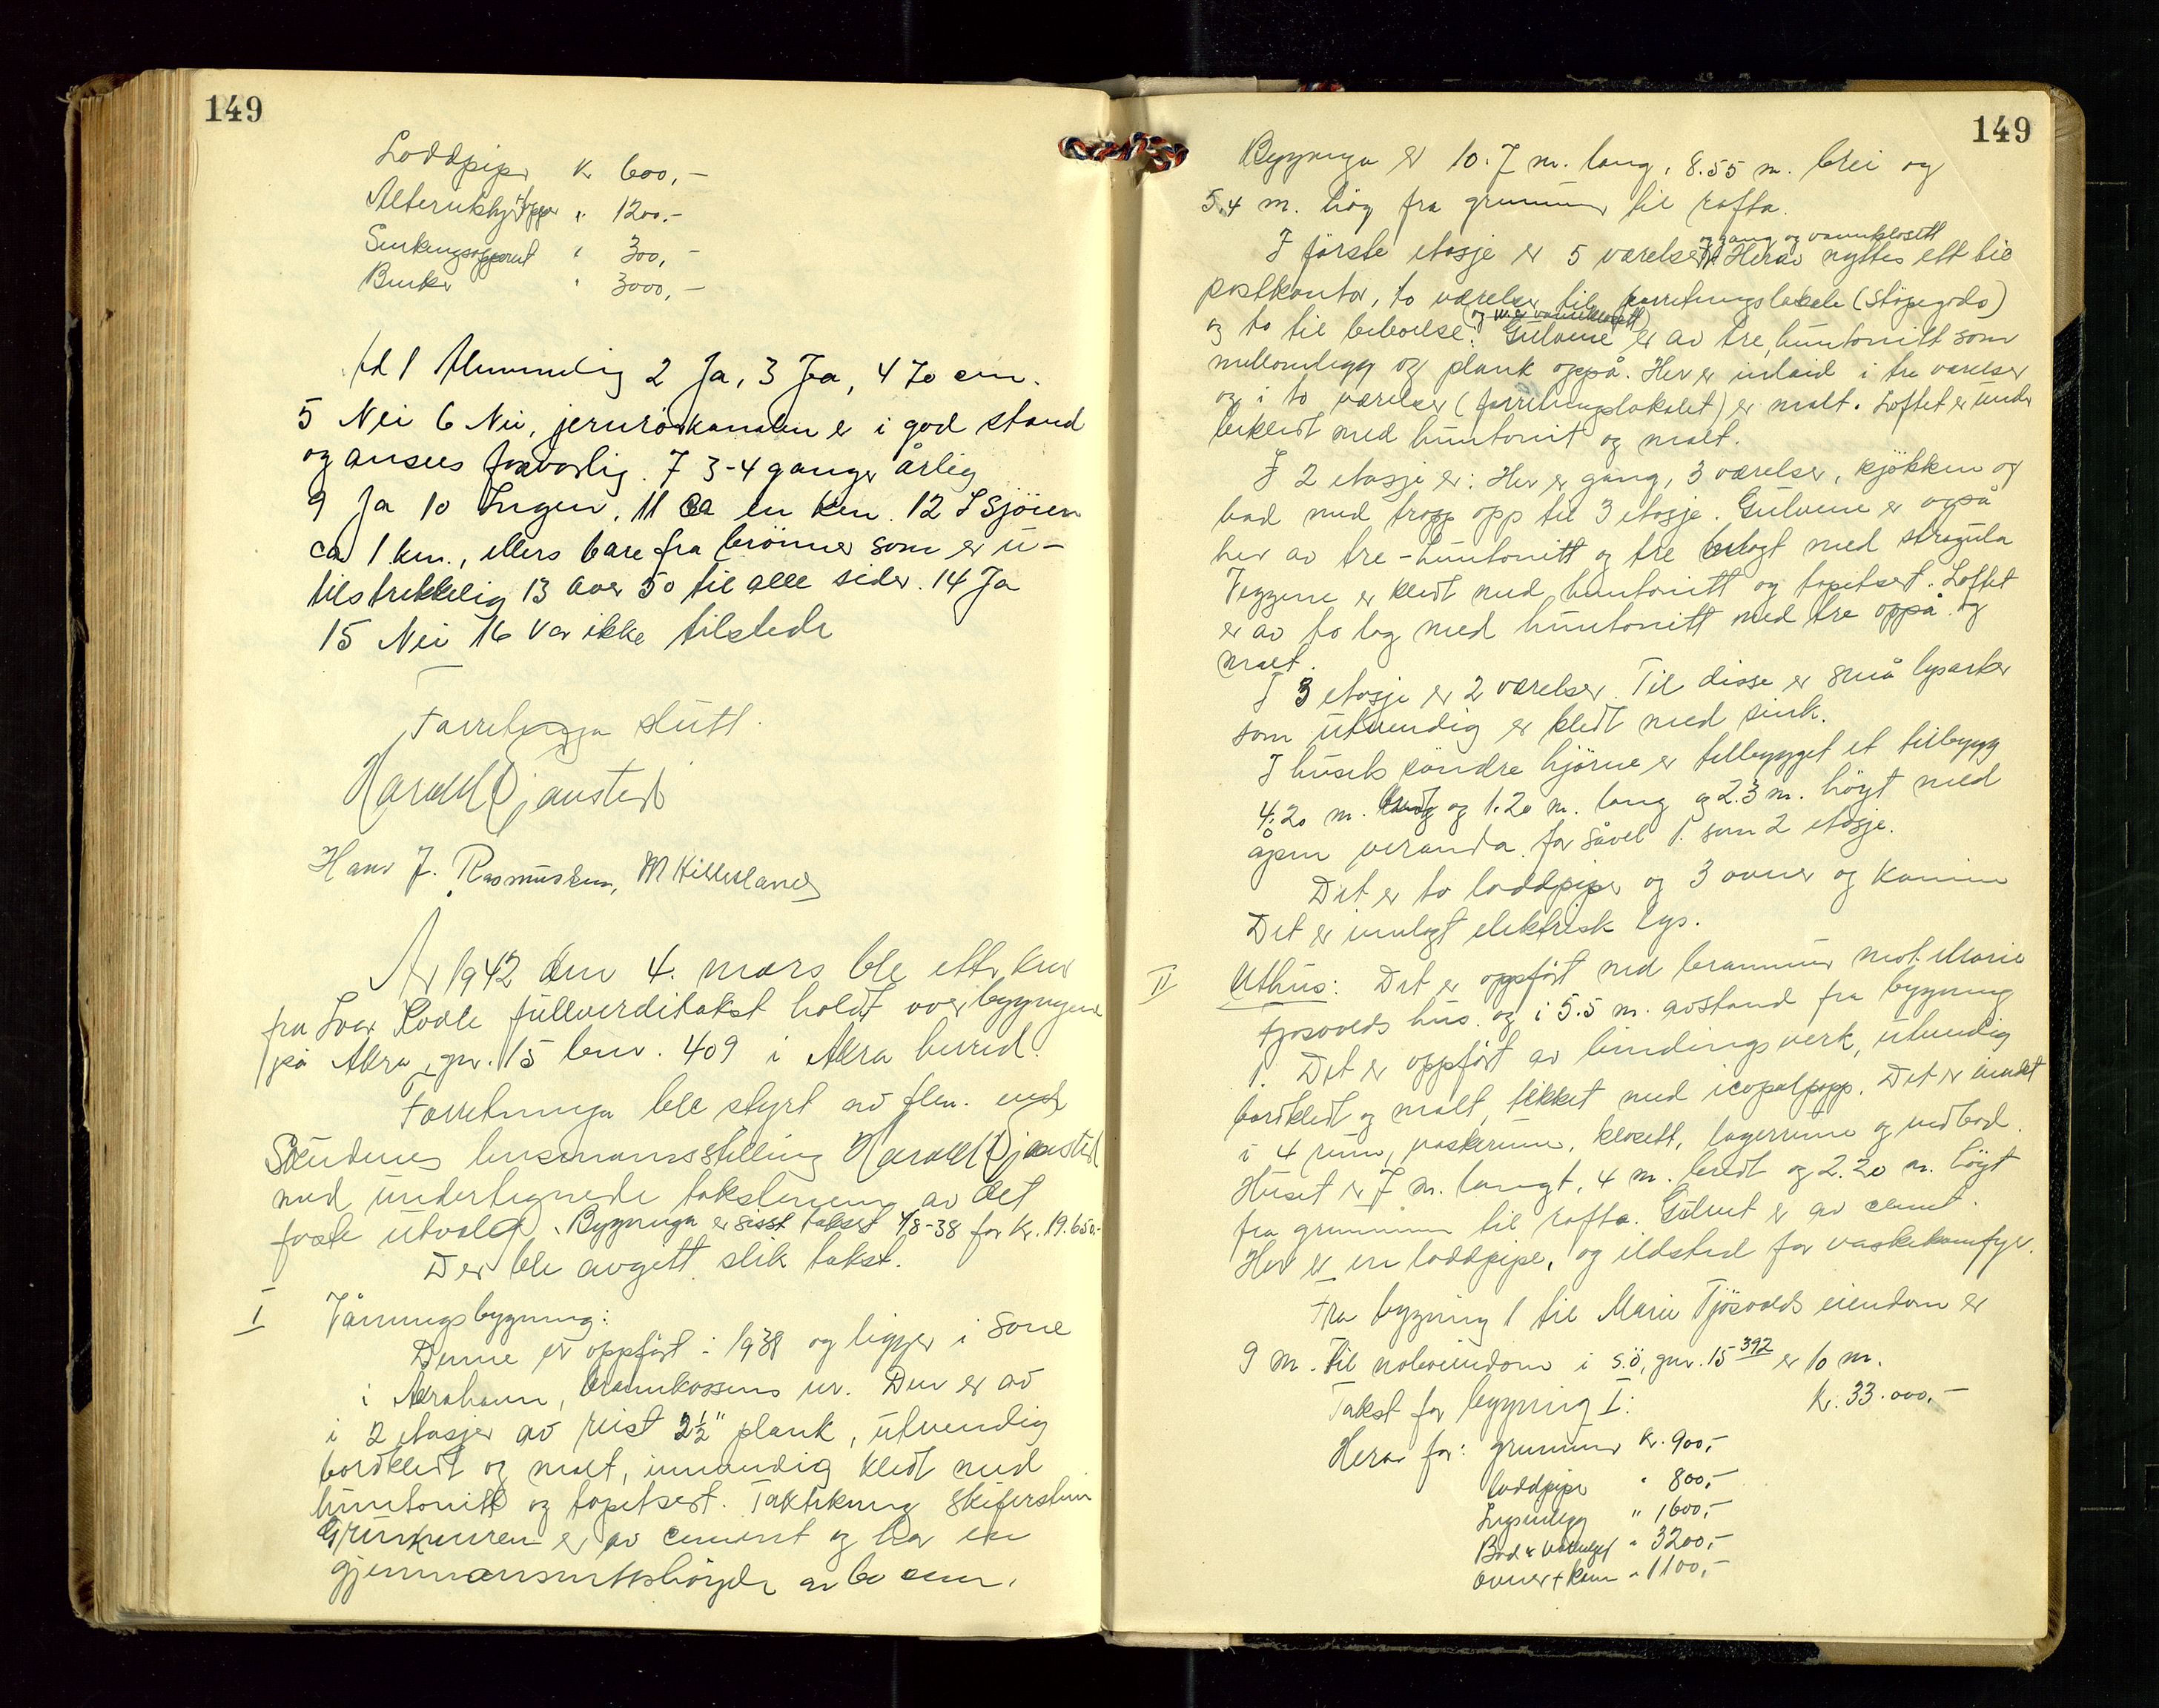 149
Loddpiper K 600,-
" 1200.-
" 300,-
" 3000,-
ad 1 Almindelig 2 Ja, 3 Ja, 4 70 cm.
5 Nei 6 Nei, jernrörkanalen er i god stand
og ansees forsvarlig. 7 3-4 ganger årlig
9 Ja 10 Ingen, 11 Ca en km. 12 I Sjöen
ca 1 km., ellers bare fra brönner som er u-
tilstrekkelig 13 Over 50 til alle sider. 14 Ja
15 Nei 16 Var ikke tilstede
Forretninga slutt.
Harald Djansted
Hans J. Rasmussen, M Hillesland
År 1942 den 4. mars ble etter krav
fra Ivar fullverditakst holdt over bygningene
på Åkra, gnr. 15 bnr. 409 i Åkra herred.
Forretninga ble styrt av flm. ved
Skudenes lensmannsstilling Harald Djansted
med undertegnede takstmenn av det
faste utvalg. Bygninga er sisst takset 4/8-38 for Kr. 19.650.-
Der ble avgitt slik takst.
I Våningsbygning:
Denne er oppfört i 1938 og ligger i Sone
i Åkrahavn, brannkassens nr. Den er av
i 2 etasjer av reist 2½" plank, utvendig
bordkledt og malt, innvendig kledt med
huntonitt og tapetsert. Taktekning skiferstein
Grunnmuren er av cement og har en
gjennomsnittshöyde av 60 cm.
149
Bygninga er 10.7 m. lang, 8.55 m. brei og
5,4 m. höy fra grunnmur til rafta.
og gang og vannklosett
I förste etasje er 5 værelser. Herav nyttes ett til
postkontor, to værelser til forretningslokale (Stöpegods)
og to til beboelse. Gulvene er av tre, huntonitt som
mellomlegg og plank oppå. Her er inlaid i tre værelser
og i to værelser (forretningslokalet) er malt. Loftet er under
bekledt med huntonit og malt.
I 2 etasje er: Her er gang, 3 værelser, kjökken og
bad med trapp opp til 3 etasje. Gulvene er også
her av tre-huntonitt og tre belagt med stragula
Veggene er kledt med huntonitt og tapetsert. Loftet
er av to lag med huntonitt med tre oppå og
malt.
I 3 etasje er 2 værelser. Til disse er små lysarker
som utvendig er kledt med sink.
I husets söndre hjörne er tilbygget et tilbygg
4.20 m. og 1.20 m. lang og 2.3 m. höyt med
åpen veranda for såvel 1. som 2 etasje.
Det er to loddpiper og 3 ovner og kamin
Det er innlagt elektrisk lys.
II Uthus: Det er oppfört med brannmur mot Marie
Tjösvolds hus og i 5.5 m. avstand fra bygning
1. Det er oppfört av bindingsverk, utvendig
bordkledt og malt, tekket med icopalpapp. Det er inndelt
i 4 rum, vaskerum, klosett, lagerrum og vedbod.
Huset er 7 m. langt, 4 m. bredt og 2.20 m. höyt
fra grunnmur til rafta. Gulvet er av cement.
Her er en loddpipe, og ildsted for vaskekomfyr.
Fra bygning 1 til Marie Tjösvolds eiendom er
9 m. til naboeiendom i s.ö, gnr. 15 392 er 10 m.
Takst for bygning I: Kr. 33.000,-
Herav for: grunnmur Kr. 900,-
loddpiper " 800,-
Lysanlegg " 1600,-
Bad & vannlegg " 3200,-
Ovner + kam " 1100,-